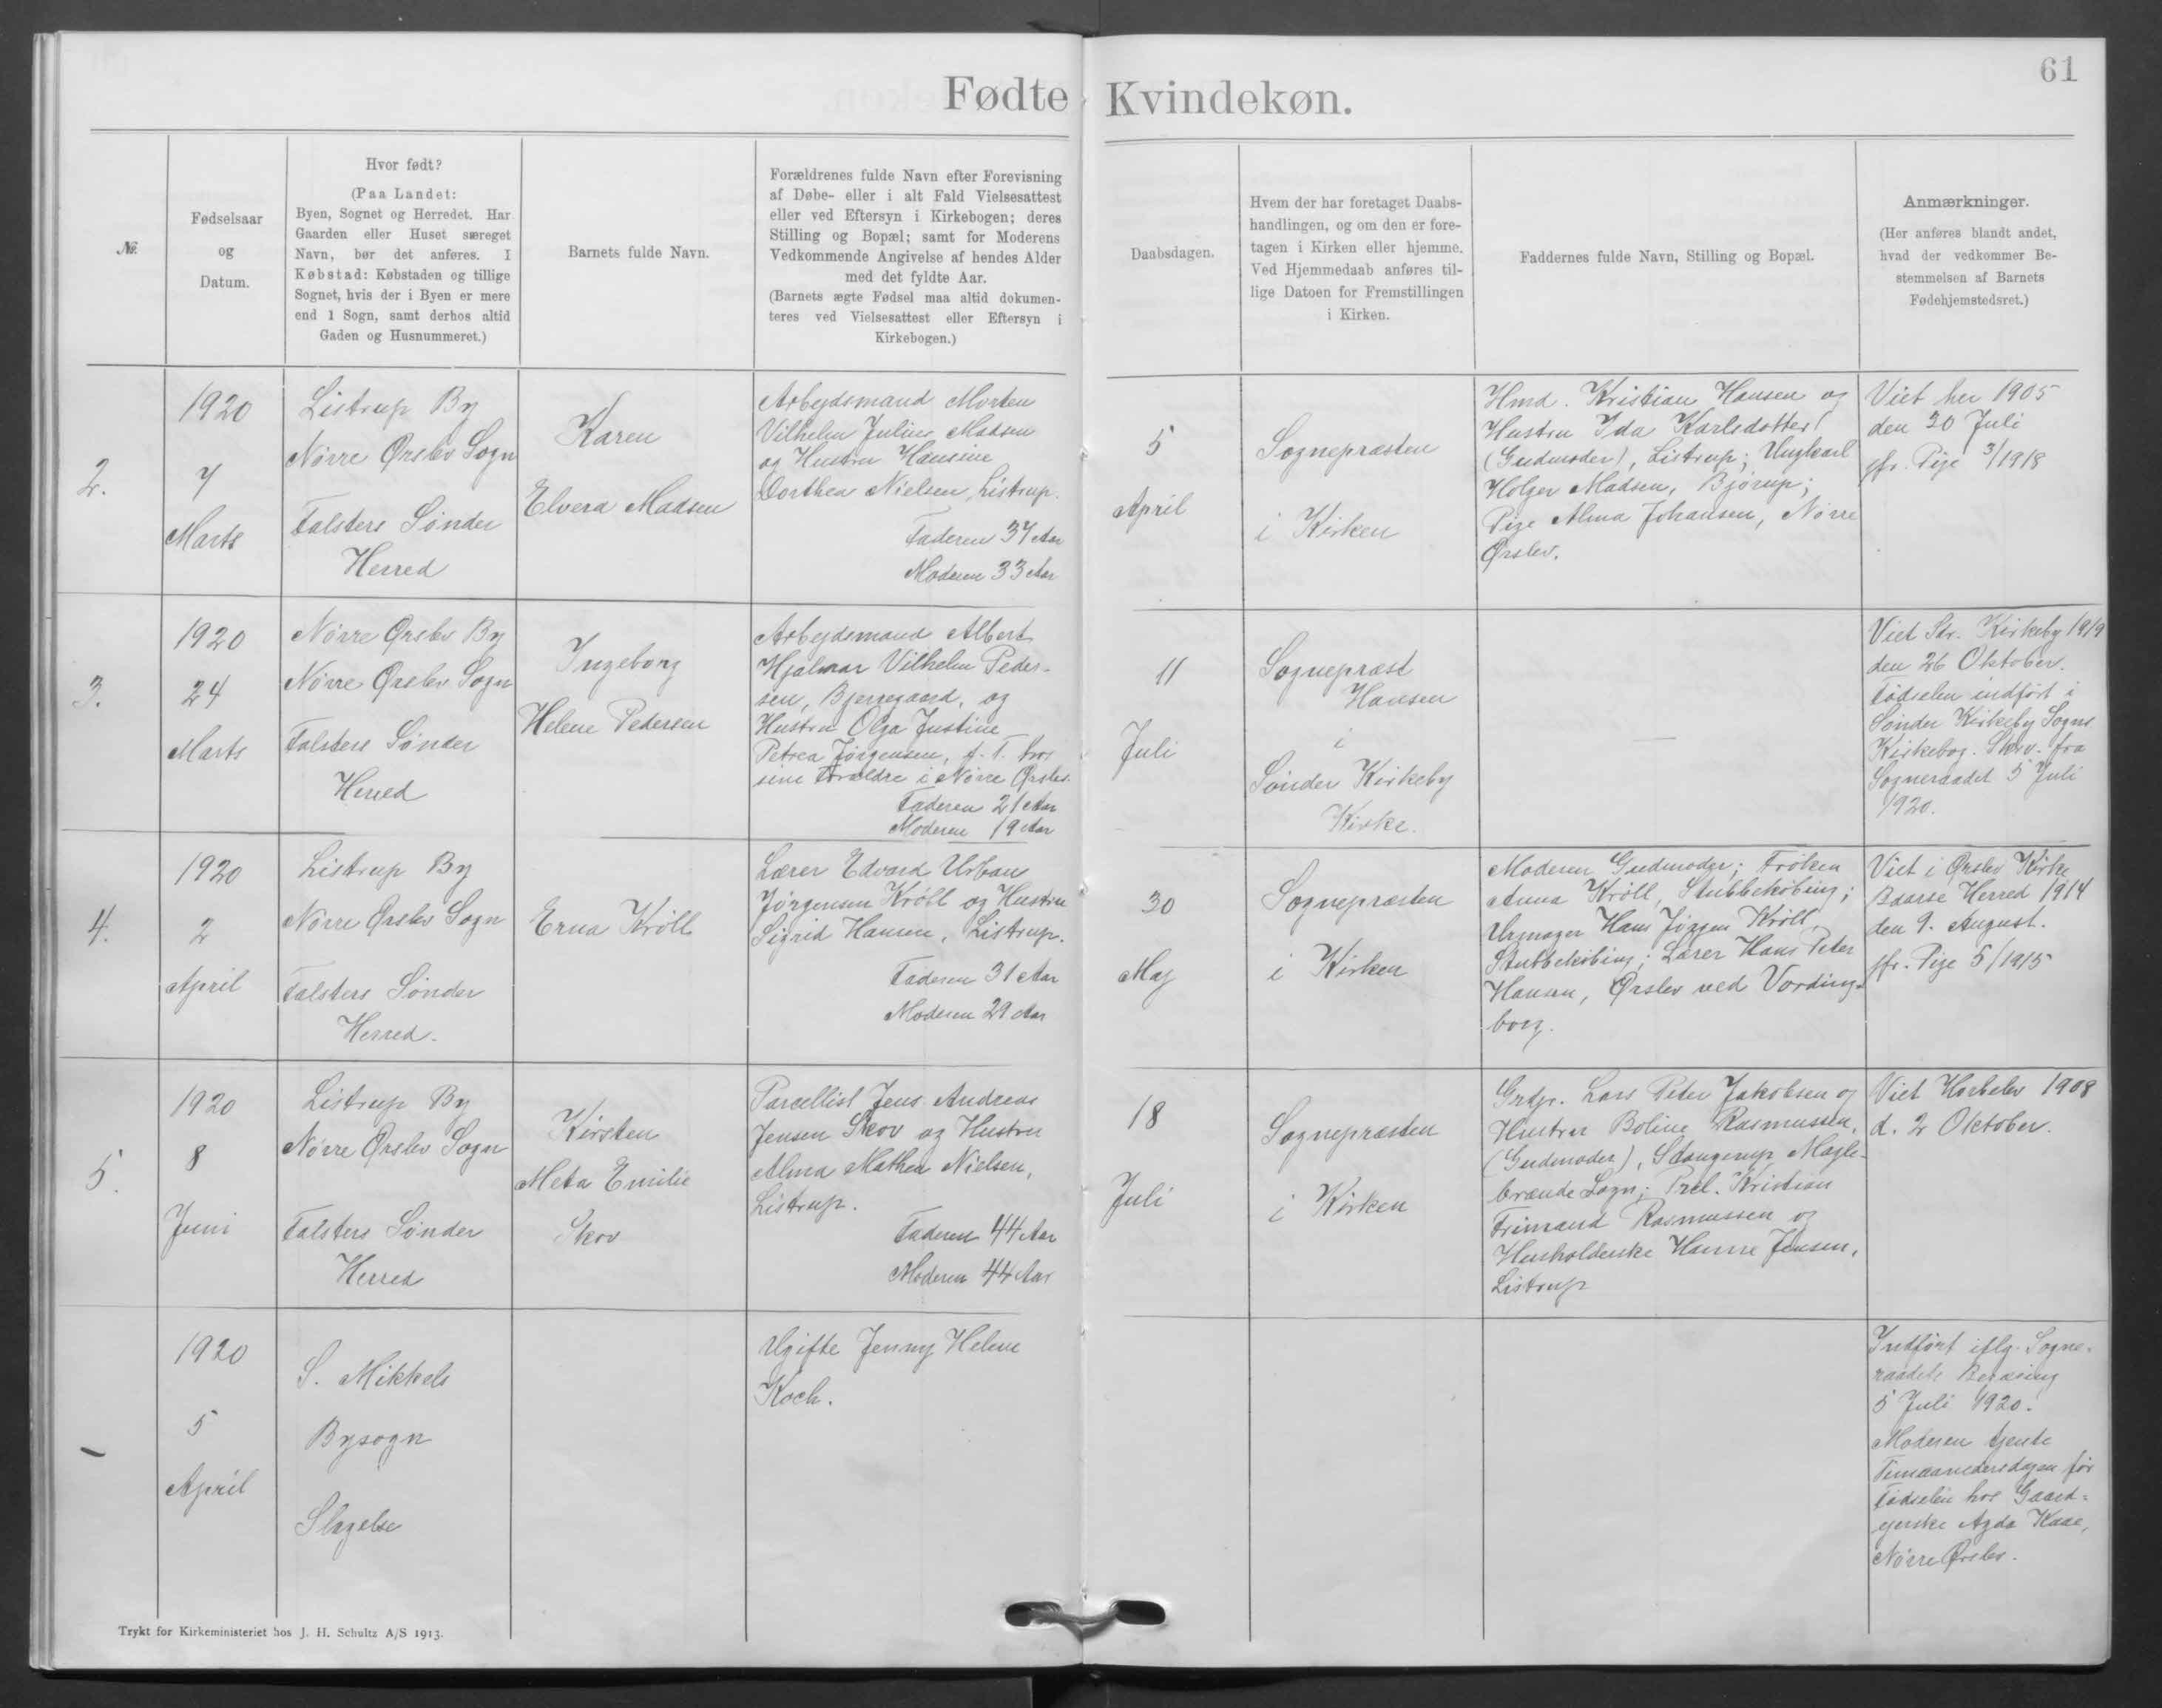 61
Fødte Kvindekøn.
№
Fødselsaar
og
Datum.
Hvor født?
(Paa Landet:
Byen, Sognet og Herredet. Har
Gaarden eller Huset særeget
Navn, bør det anføres. I
Købstad: Købstaden og tillige
Sognet, hvis der i Byen er mere
end 1 Sogn, samt derhos altid
Gaden og Husnummeret.)
Barnets fulde Navn.
Forældrenes fulde Navn efter Forevisning
af Døbe- eller i alt Fald Vielsesattest
eller ved Eftersyn i Kirkebogen; deres
Stilling og Bopæl; samt for Moderens
Vedkommende Angivelse af hendes Alder
med det fyldte Aar.
(Barnets ægte Fødsel maa altid dokumen-
teres ved Vielsesattest eller Eftersyn i
Kirkebogen.)
Daabsdagen.
Hvem der har foretaget Daabs-
handlingen, og om den er fore-
tagen i Kirken eller hjemme.
Ved Hjemmedaab anføres til-
lige Datoen for Fremstillingen
i Kirken.
Faddernes fulde Navn, Stilling og Bopæl.
Anmærkninger.
(Her anføres blandt andet,
hvad der vedkommer Be-
stemmelsen af Barnets
Fødehjemstedsret.)
2.
1920
7
Marts
Listrup By
Nörre Ørslev Sogn
Falsters Sönder
Herred
Karen
Elvera Madsen
Arbejdsmand Morten
Vilhelm Julius Madsen
og Hustru Hansine
Dorthea Nielsen, Listrup.
Faderen 37 Aar
Moderen 33 Aar
5
April
Sognepræsten
i Kirken
Hmd. Kristian Hansen og
Hustru Ida Karlsdotter
(Gudmoder), Listrup; Ungkarl
Holger Madsen, Björup;
Pige Alma Johansen, Nörre
Ørslev.
Viet her 1905
den 30 Juli
jfr. Pige 3/1918
3.
1920
24
Marts
Nörre Ørslev By
Nörre Ørslev Sogn
Falsters Sönder
Herred
Ingeborg
Helene Pedersen
Arbejdsmand Albert
Hjalmar Vilhelm Peder-
sen, Bjerregaard, og
Hustru Olga Justine
Petrea Jörgensen, p. T. hos
sine Forældre i Nörre Ørslev.
Faderen 21 Aar
Moderen 19 Aar
11
Juli
Sognepræst
Hansen
i
Sönder Kirkeby
Kirke.
—
Viet Sdr. Kirkeby 1919
den 26 Oktober.
Födselen indfört i
Sönder Kirkeby Sogns
Kirkebog. Skriv. fra
Sogneraadet 5 Juli
1920.
4.
1920
2
April
Listrup By
Nörre Ørslev Sogn
Falsters Sönder
Herred.
Erna Kröll
Lærer Edvard Urban
Jörgensen Kröll og Hustru
Sigrid Hansen, Listrup.
Faderen 31 Aar
Moderen 29 Aar
30
Maj
Sognepræsten
i Kirken
Moderen Gudmoder; Fröken
Anna Kröll, Stubbeköbing;
Urmager Hans Jörgen Kröll,
Stubbeköbing; Lærer Hans Peter
Hansen, Ørslev ved Vording-
borg.
Viet i Ørslev Kirke
Baarse Herred 1914
den 9. August.
jfr. Pige 5/1915
5.
1920
8
Juni
Listrup By
Nörre Ørslev Sogn
Falsters Sönder
Herred
Kirsten
Meta Emilie
Skov
Parcellist Jens Andreas
Jensen Skov og Hustru
Alma Mathea Nielsen,
Listrup.
Faderen 44 Aar
Moderen 44 Aar
18
Juli
Sognepræsten
i Kirken
Grdjr. Lars Peter Jakobsen og
Hustru Boline Rasmussen,
(Gudmoder), Stangerup Magle-
brænde Sogn; Prcl. Kristian
Frimand Rasmussen og
Husholderske Hanne Jensen,
Listrup
Viet Horbelev 1908
d. 2 Oktober.
–
1920
5
April
S. Mikkels
Bysogn
Slagelse
Ugifte Jenny Helene
Koch.
Indfört iflg. Sogne-
raadets Begæring
5 Juli 1920.
Moderen tjente
Timaanedersdagen för
Födselen hos Gaard-
ejerske Agda Kaae,
Nörre Ørslev.
Trykt for Kirkeministeriet hos J. H. Schultz A/S 1913.